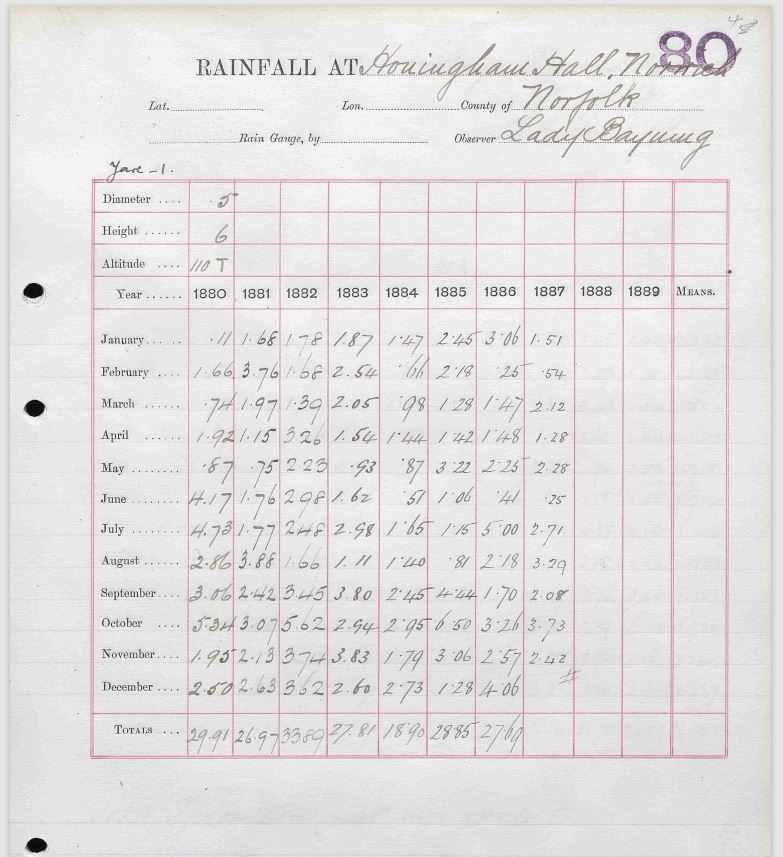 80
RAINFALL AT Honingham Hall, Norwich
Lat. Lon. County of Norfolk
Rain Gauge, by Observer Lady Bayning
Yare - 1.
Diameter .... 5
Height ...... 6
Altitude .... 110 T
Year ...... 1880 1881 1882 1883 1884 1885 1886 1887 1888 1889 MEANS.
January .11 1.68 1.78 1.87 1.47 2.45 3.06 1.51
February 1.66 3.76 1.68 2.54 .66 2.18 .25 .54
March .74 1.97 1.39 2.05 .98 1.28 1.47 2.12
April 1.92 1.15 3.26 1.54 1.44 1.42 1.48 1.28
May .87 .75 2.23 .93 .87 3.22 2.25 2.28
June 4.17 1.76 2.98 1.62 .51 1.06 .41 .25
July 4.73 1.77 2.48 2.98 1.65 1.15 5.00 2.71
August 2.86 3.88 1.66 1.11 1.40 .81 2.18 3.29
September 3.06 2.42 3.45 3.80 2.45 4.44 1.70 2.08
October 5.34 3.07 5.62 2.94 2.95 6.50 3.26 3.73
November 1.95 2.13 3.74 3.83 1.79 3.06 2.57 2.42
December 2.50 2.63 3.62 2.60 2.73 1.28 4.06 #
TOTALS 29.91 26.97 33.89 27.81 18.90 28.85 27.69